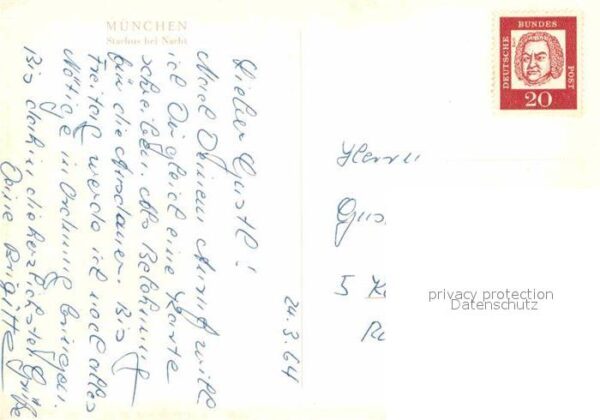 MÜNCHEN
Stachus bei Nacht
DEUTSCHE
BUNDES
POST
20
24.3.64
Lieber Gustl!
Nach Deinem Anruf will
ich Dir gleich eine Karte
schreiben. Als Belohnung
für die Ausdauer. Bis
Freitag werde ich noch alles
Nötige in Ordnung bringen.
Bis dahin die herzlichsten Grüße
Deine Brigitte
Herrn
Gus
5 K
privacy protection
Datenschutz